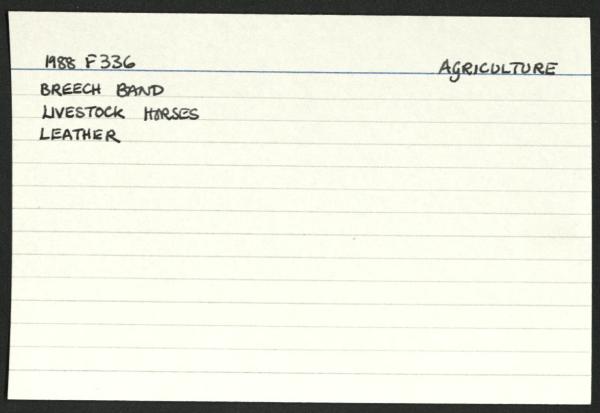 1988 F336 AGRICULTURE
BREECH BAND
LIVESTOCK HORSES
LEATHER